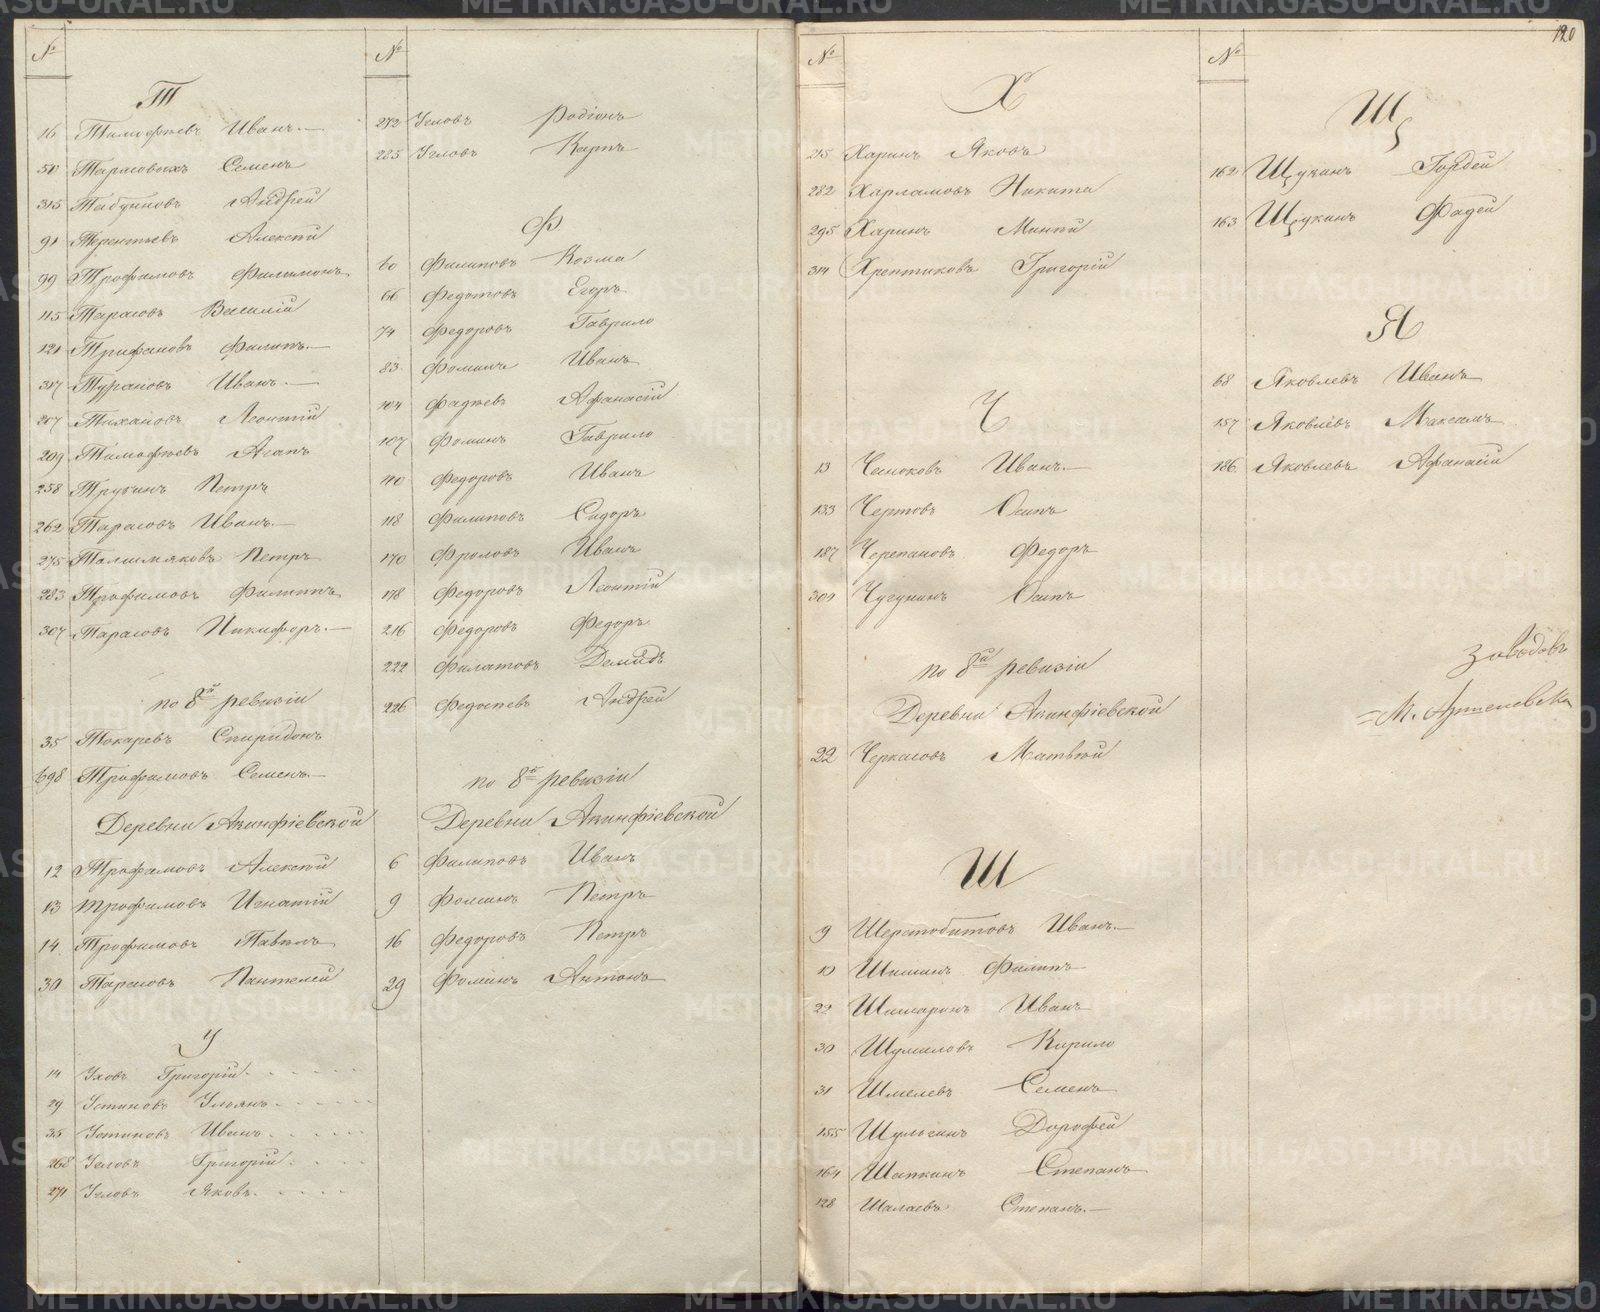 №
Т
16 Тимофѣевъ Иванъ.
50 Тарасовыхъ Семенъ
315 Табуиновъ Андрей
91 Терентьевъ Алексѣй
99 Трофимовъ Филимонъ
115 Тарасовъ Василій
121 Трифановъ Филипъ.
317 Турановъ Иванъ.
207 Тихановъ Леонтій
209 Тимофѣевъ Агапъ
258 Трубинъ Петръ
262 Тарасовъ Иванъ.
275 Петръ
283 Трофимовъ Филиппъ
307 Тарасовъ Никифоръ.
по 8й ревизіи
35 Токаревъ Спиридонъ
698 Трофимовъ Семенъ.
Деревни Акинфіевской
12 Трофимовъ Алексѣй
13 Трофимовъ Игнатій
14 Трофимовъ Павелъ
30 Тарасовъ Пантелей
У
14 Уховъ Григорій
29 Устиновъ Ульянъ
35 Устиновъ Иванъ
268 Угловъ Григорій
271 Угловъ Яковъ
№
272 Угловъ Родіонъ
285 Угловъ Карпъ
Ф
60 Филиповъ Козма
66 Федотовъ Егоръ
74 Федоровъ Гаврило
83 Фоминъ Иванъ
104 Фадѣевъ Афанасій
107 Фоминъ Гаврило
110 Федоровъ Иванъ
118 Филиповъ Сидоръ
170 Фроловъ Иванъ
178 Федоровъ Леонтій
216 Федоровъ Федоръ
222 Филатовъ Демидъ
226 Федосѣевъ Андрей
по 8й ревизіи
Деревни Акинфіевской
6 Филиповъ Иванъ
9 Фоминъ Петръ
16 Федоровъ Петръ
29 Фоминъ Антонъ
№
Х
215 Харинъ Яковъ
282 Харламовъ Никита
295 Харинъ Минѣй
314 Хрептиковъ Григорій
Ч
13 Иванъ.
133 Чертовъ Осипъ
187 Черепановъ Федоръ
301 Чугунинъ Осипъ
по 8й ревизіи
Деревни Акинфіевской
22 Черкасовъ Матвѣй
Ш
9 Шерстобитовъ Иванъ.
10 Шишинъ Филипъ
22 Шишаринъ Иванъ
30 Шумиловъ Кирило
31 Шмелевъ Семенъ
155 Шульгинъ Дорофей
164 Шапкинъ Степанъ
128 Шалаевъ Степанъ.
№
120
Щ
162 Щукинъ Гордей
163 Щукинъ Фадей
Я
68 Яковлевъ Иванъ
157 Яковлевъ Максимъ
186 Яковлевъ Афанасій
Заводовъ
METRIKI.GASO-URAL.RU